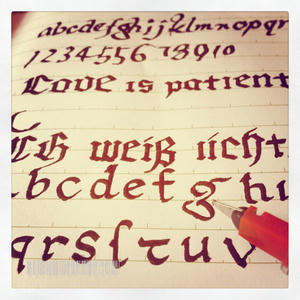 abcdefghijklmnopqr
1234556 78910
Love is patient
Ich weiß nicht
abcdefghi
qrsſtuv